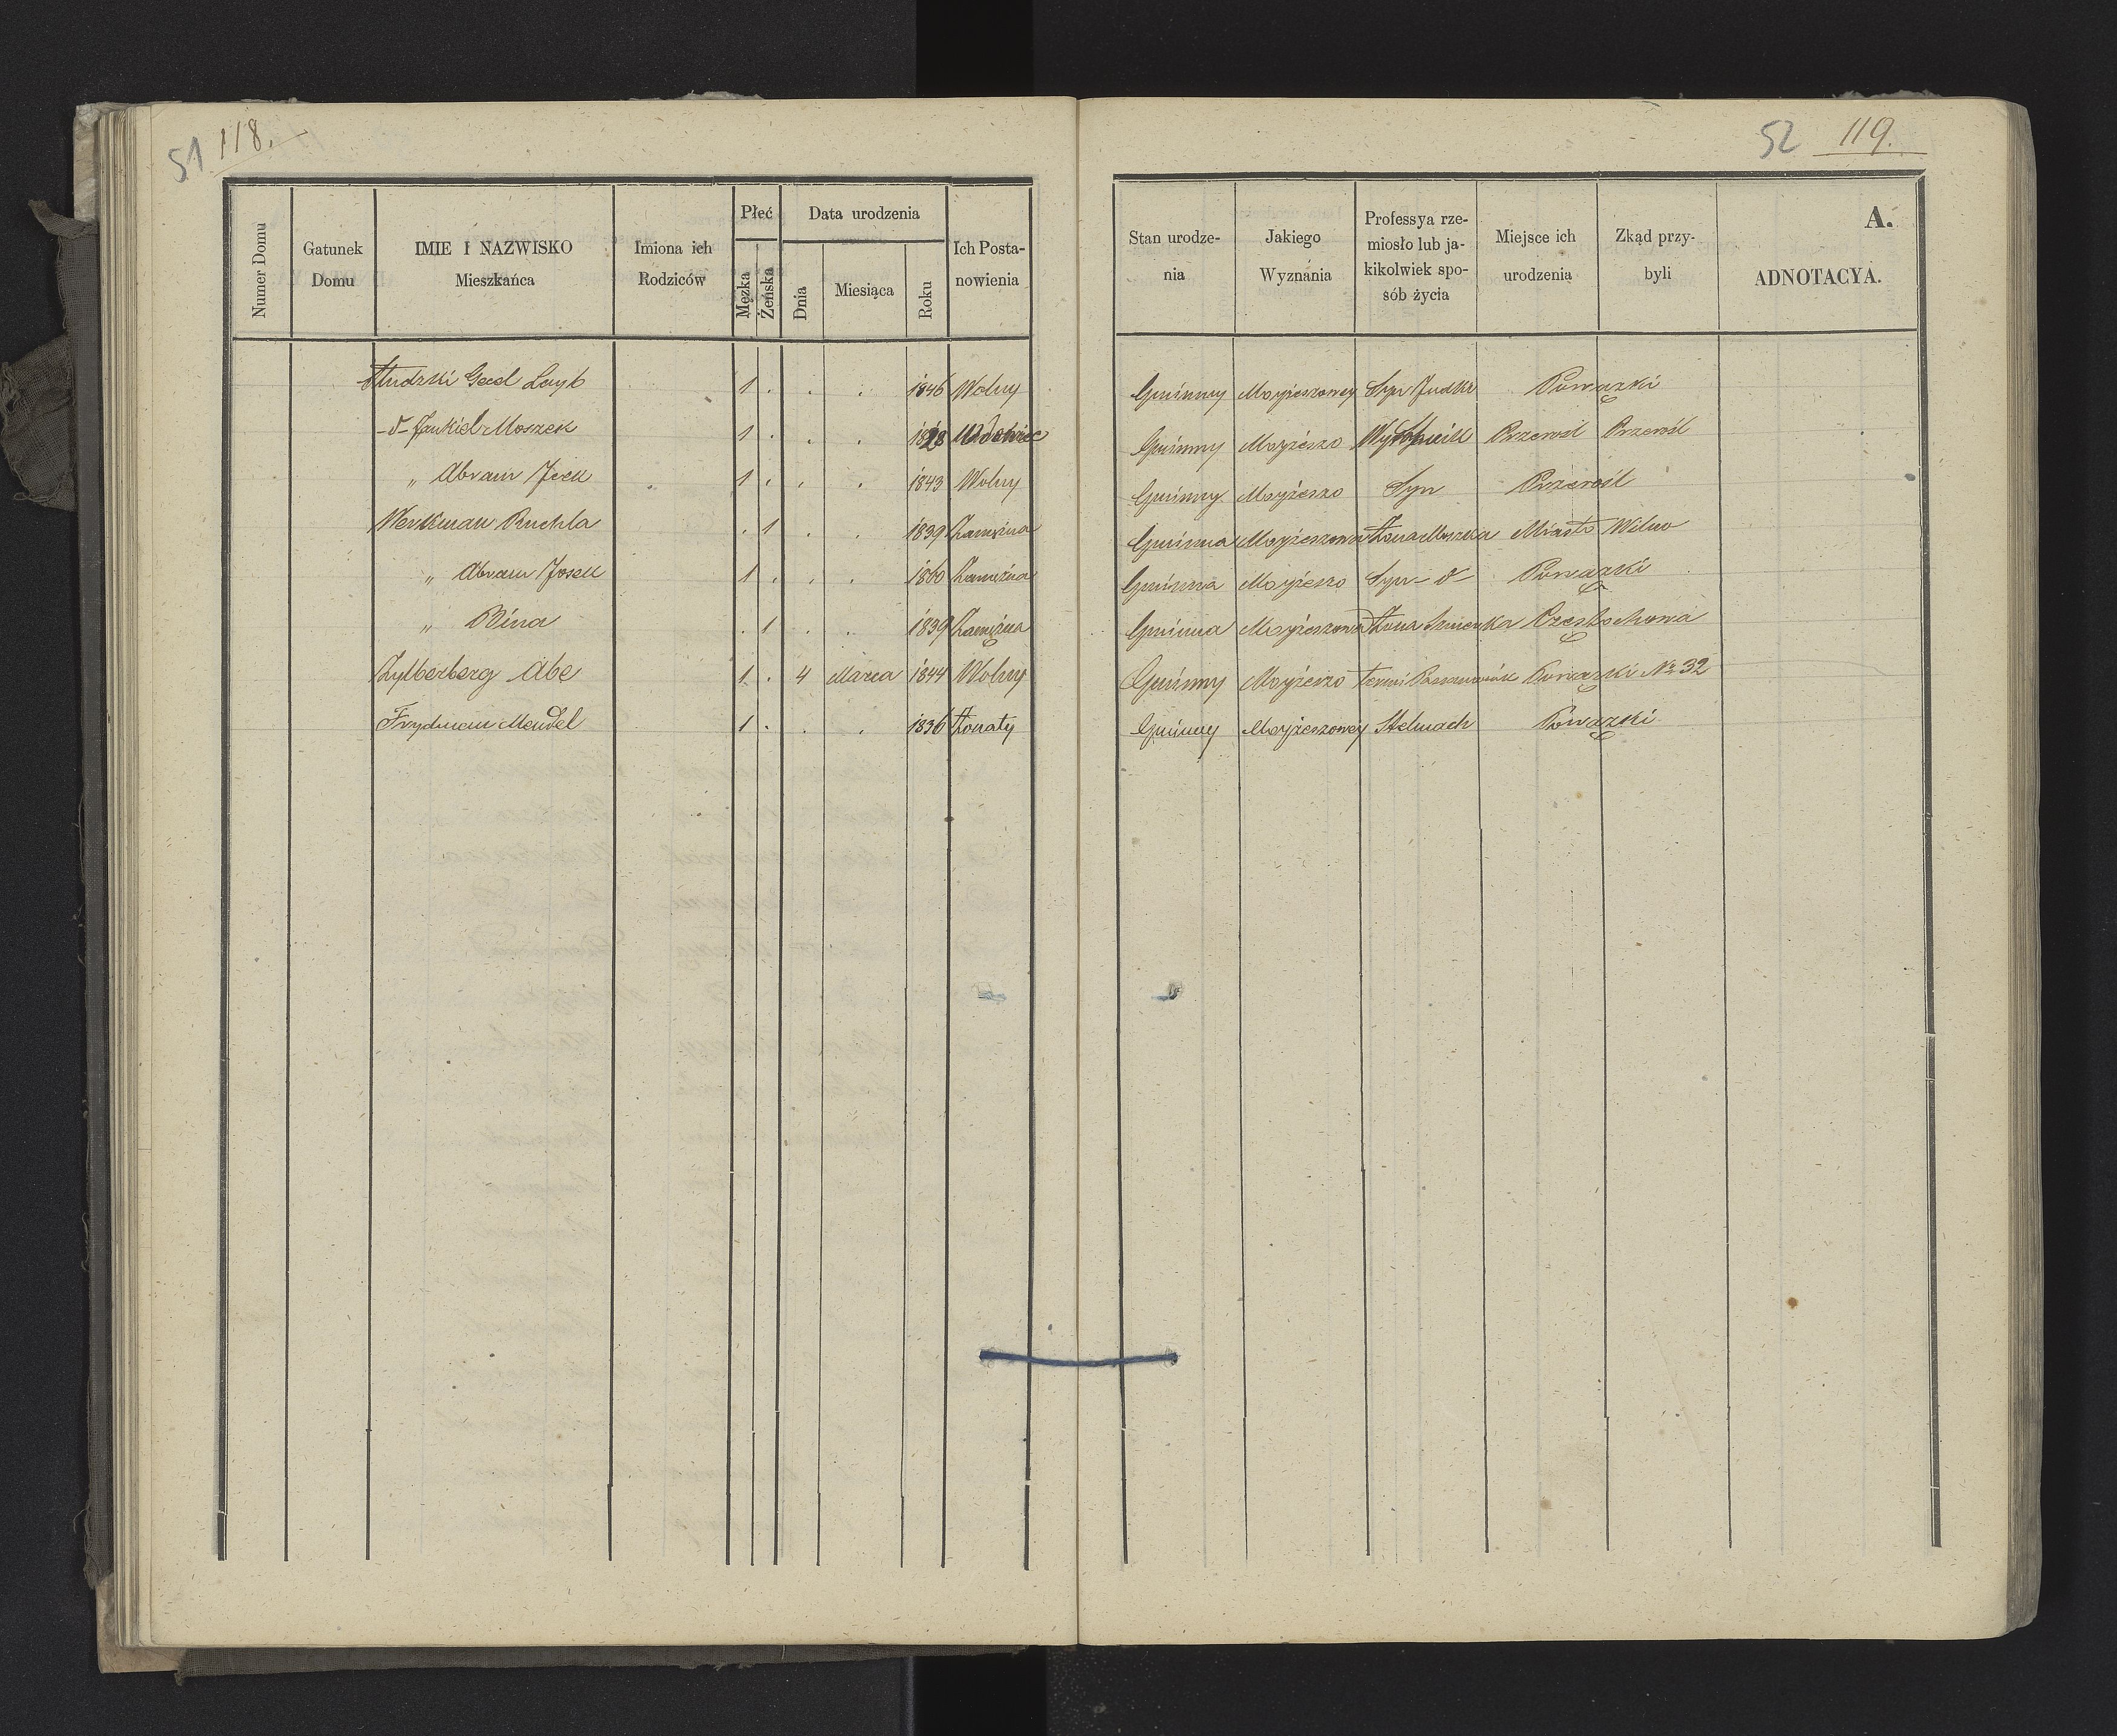 51 118.
52 119.
Numer Domu
Gatunek Domu
IMIE I NAZWISKO Mieszkańca
Imiona ich Rodziców
Płeć
Męzka
Żeńska
Data urodzenia
Dnia
Miesiąca
Roku
Ich Postanowienia
Stan urodzenia
Jakiego Wyznania
Professya rzemiosło lub jakikolwiek sposób życia
Miejsce ich urodzenia
Zkąd przybyli
A.
ADNOTACYA.
Gecel Leyb 1 . . . 1846 Wolny Gminny Mojżeszowey Syn Judki Powązki
-d- Jankiel Moszek 1 . . . Wdowiec Gminny Mojżeszo Wyrobnik Przerośl Przerośl
„ Abram Icek 1 . . . 1843 Wolny Gminny Mojżeszo Syn Przerośl
Werkman Ruchla . 1 . . 1839 Zamężna Gminna Mojżeszowa Żona Moszka Miasto Wilno
„ Abram Josek 1 . . . 1860 Zamężna Gminna Mojżeszo Syn -d- Powązki
„ Bina . 1 . . 1839 Zamężna Gminna Mojżeszowa Żona Częstochowa
Zylberberg Abe 1 . 4 Marca 1844 Wolny Gminny Mojżeszo Powązki No 32
Frydman Mendel 1 . . . 1836 Żonaty Gminny Mojżeszowey Stelmach Powązki